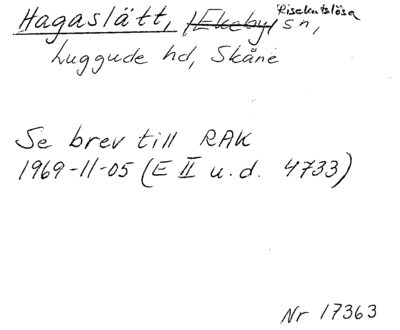 Hagaslätt, /Ekeby/ Risekatslösa sn,
Luggude hd, Skåne
Se brev till RAK
1969-11-05 (E II u.d. 4733)
Nr 17363